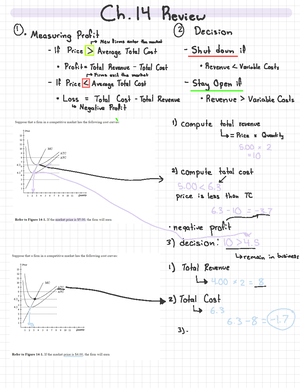 Ch. 14 Review
① Measuring Profit
→ New firms enter the market
- If Price > Average Total Cost
• Profit = Total Revenue - Total Cost
→ Firms exit the market
- If Price < Average Total Cost
• Loss = Total Cost - Total Revenue
↳ Negative Profit
② Decision
- Shut down if
• Revenue < Variable Costs
- Stay Open if
• Revenue > Variable Costs
Suppose that a firm in a competitive market has the following cost curves:
MC
ATC
AVC
Refer to Figure 14-1. If the market price is $5.00, the firm will earn
1) Compute total revenue
↳ = Price × Quantity
5.00 × 2
= 10
2) Compute total cost
5.00 < 6.3
price is less than TC
6.3 - 10 = -3.7
• negative profit
3) decision: 10 > 4.5
↳ remain in business
Suppose that a firm in a competitive market has the following cost curves:
MC
ATC
AVC
Refer to Figure 14-1. If the market price is $4.00, the firm will earn
1) Total Revenue
↳ 4.00 × 2 = 8
2) Total Cost
↳ 6.3
6.3 - 8 = -1.7
3).